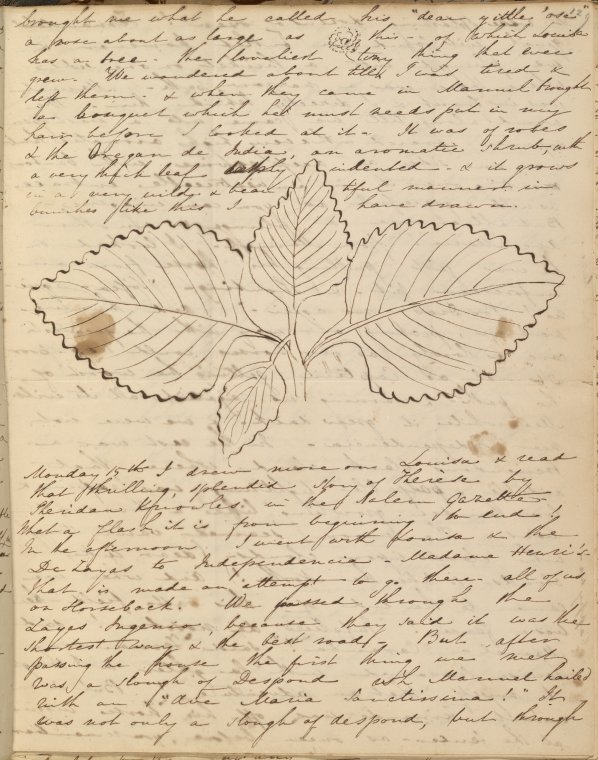 brought me what he called his "dear yittle 'ose"
a rose about as large as this - of which Louisa
has a tree. the loveliest tony thing that ever
grew. We wandered about till I was tired &
left them - & when they came in Manuel brought
a bouquet which he must needs put in my
hair before I looked at it - It was of roses
& the Oregan de India an aromatic shrub with
a very thick leaf indented - & it grows
in a very wild & beautiful manner in
bunches like this I have drawn.
Monday 15th I drew more on Louisa & read
that thrilling, splendid story of Therese by
Sheridan Knowles in the Salem Gazette
What a flash it is from beginning to end!
In the afternoon I went with Louisa & the
De Layas to Independencia - Madame Henri's -
that is made an attempt to go there - all of us
on Horseback. We passed through the
Layas Ingenio, because they said it was the
shortest way & the best road - But after
passing the house the first thing we met
was a slough of Despond Manuel hailed
with an "Ave Maria Sanctissima!" It
was not only a slough of despond, but through